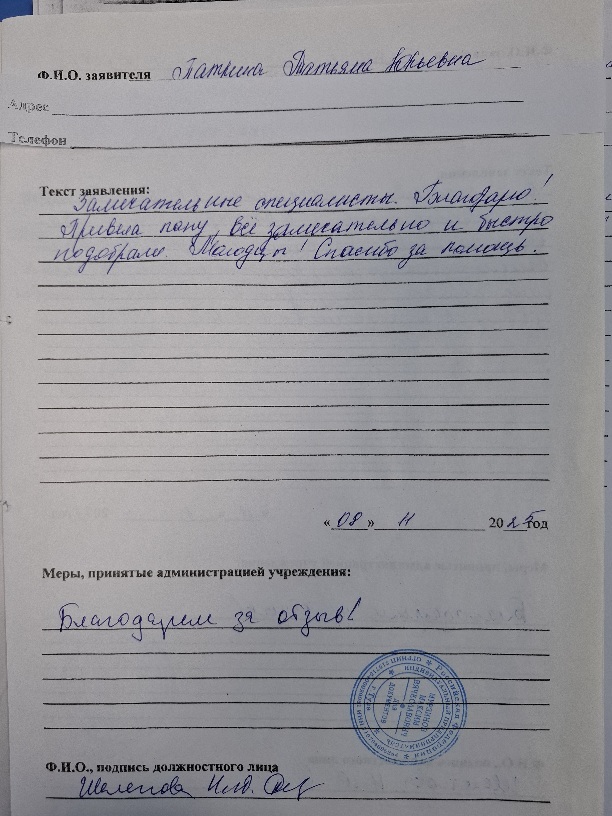 Ф.И.О. заявителя Татьяна Юрьевна
Адрес
Телефон
Текст заявления:
Замечательные специалисты. Благодарю!
Привела папу, всё замечательно и быстро
подобрали. Молодцы! Спасибо за помощь.
«08» 11 2025 год
Меры, принятые администрацией учреждения:
Благодарим за отзыв!
Российская Федерация
для документов
Ф.И.О., подпись должностного лица